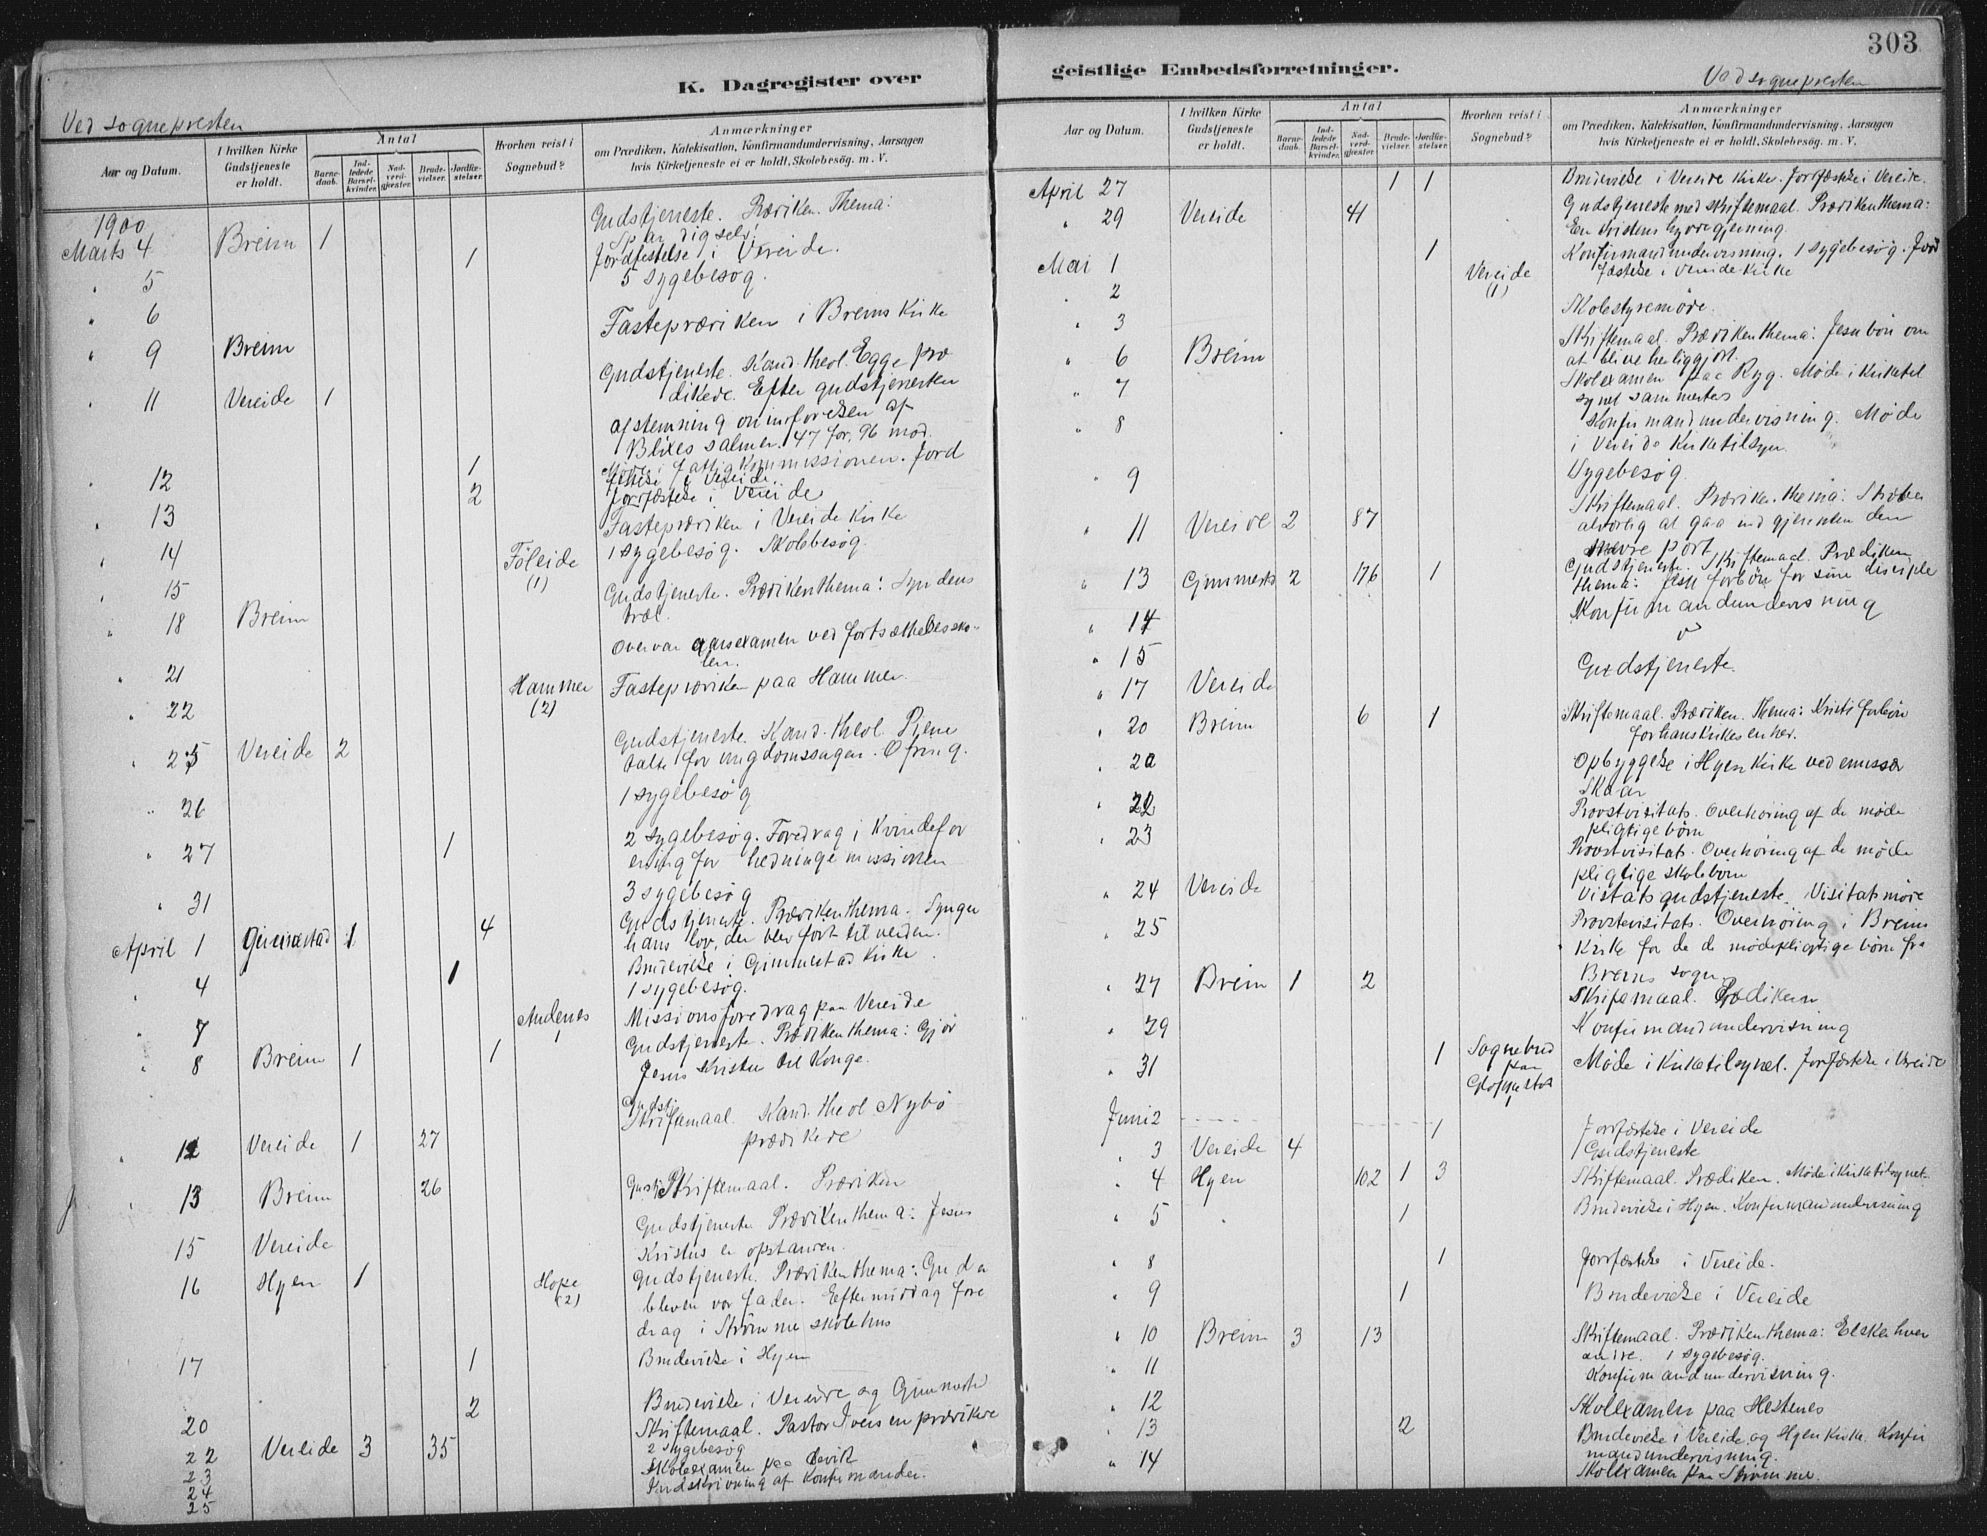 303
K. Dagregister over geistlige Embedsforretninger.
Ved sognepresten
Ved sognepresten
Aar og Datum.
I hvilken Kirke Gudstjeneste er holdt.
Antal
Barnedaab.
Indledede Barselkvinder.
Nadverdgjester.
Brudevielser.
Jordfæstelser.
Hvorhen reist i Sognebud?
Anmærkninger
om Prædiken, Katekisation, Konfirmandundervisning, Aarsagen
hvis Kirketjeneste ei er holdt, Skolebesøg. m. V.
1900
Marts 4 Breim 1 Gudstjeneste. Prædiken. Thema:
Spar dig selv!
" 5 1 Jordfestelse i Vereide.
" 6 5 sygebesøg.
" 9 Breim Fasteprædiken i Breims Kirke
" 11 Vereide 1 Gudstjeneste. Kand. theol. Egge præ
dikede. Efter gudstjenesten
afstemning om indførelsen af
Blixes salmer. 47 for, 96 mod.
" 12 1 Møde i fattigkommissionen. Jord
festelse i Vereide.
" 13 2 Jordfæstelse i Vereide
" 14 Fasteprædiken i Vereide Kirke
" 15 Føleide (1) 1 sygebesøg. Skolebesøg.
" 18 Breim Gudstjeneste. Prædikenthema: Syndens
træl.
" 21 Overvar aarsexamen ved fortsættelsessko-
len.
" 22 Hammer (2) Fasteprædiken paa Hammer.
" 25 Vereide 2 Gudstjeneste. Kand. theol.
talte for ungdomssagen. Ofring.
" 26 1 sygebesøg
" 27 1 2 sygebesøg. Foredrag i Kvindefor
ening for hedningemissionen
" 31 3 sygebesøg
April 1 Gimmestad 1 4 Gudstjeneste. Prædikenthema. Synger
hans lov, der blev født til verden.
" 4 1 Brudevielse i Gimmestad Kirke.
1 sygebesøg.
" 7 Andenes 1 Missionsforedrag paa Vereide
" 8 Breim 1 1 Gudstjeneste. Prædikenthema: Gjør
Jesus Kristus til Konge.
" 12 Vereide 1 27 Gudstj. Skriftemaal. Kand. theol Nybø
prædikede
" 13 Breim 26 Gudstj. Skriftemaal. Prædiken
15 Vereide Gudstjeneste Prædikenthema: Jesus
Kristus er opstanden.
16 Hyen 1 Hope (2) Gudstjeneste. Prædikenthema: Gud er
bleven vor fader. Eftermiddag fore
drag i Strømme skolehus
17 1 Brudevielse i Hyen
20 2 Brudevielse i Vereide og Gimmestad
22 Vereide 3 35 Skriftemaal. Pastor Iversen prædikede
23 2 sygebesøg
24 Skoleexamen paa
25 Indskrivning af Konfirmander.
April 27 1 1 Brudevielse i Vereide Kirke. Jordfæstelse i Vereide.
" 29 Vereide 41 Gudstjeneste med skriftemaal. Prædikenthema:
En kristens hyrdegjerning.
Mai 1 1 Vereide (1) Konfirmandundervisning. 1 sygebesøg. Jord
fæstelse i Vereide Kirke
" 2 Skolestyremøde.
" 3
" 6 Breim Skriftemaal. Prædikenthema: Jesu bøn om
at blive herliggjort.
" 7 Skolexamen paa Ryg. Møde i Kirketil
synet sammesteds
" 8 Konfirmandundervisning. Møde
i Vereide Kirketilsyn.
" 9 Sygebesøg
" 11 Vereide 2 87 Skriftemaal. Prædiken. thema: Stræber
alvorlig at gaa ind gjennem den
snevre port
" 13 Gimmestad 2 176 1 Gudstjeneste. Skriftemaal. Prædiken
thema: Jesu forbøn for sine disciple
" 14 Konfirmandundervisning
" 15
" 17 Vereide Gudstjeneste.
" 20 Breim 6 1 Skriftemaal. Prædiken. Thema: Kristi forbøn
for hans kirkes enhed.
" 20 Opbyggelse i Hyen Kirke ved emissær
Skaar
" 22 Provstvisitats. Overhøring af de møde
pligtige børn
" 23 Provstvisitats. Overhøring af de møde
pligtige skolebørn
" 24 Vereide Visitatsgudstjeneste. Visitatsmøde
" 25 Provstevisitats. Overhøring i Breims
Kirke for de mødepligtige børn fra
Breims sogn
" 27 Breim 1 2 Skriftemaal. Prædiken
" 29 Konfirmandundervisning
" 31 1 Sognebud paa 1 Møde i Kirketilsynet. Jordfæstelse i Vereide
Juni 2 1 Jordfæstelse i Vereide
" 3 Vereide 4 Gudstjeneste
" 4 Hyen 102 1 3 Skriftemaal. Prædiken. Møde i Kirketilsynet.
" 5 " 1 Brudevielse i Hyen. Konfirmandundervisning
" 8 1 Jordfæstelse i Vereide.
" 9 1 Brudevielse i Vereide
" 10 Breim 3 13 Skriftemaal. Prædikenthema: Elsker hver
andre. 1 sygebesøg.
" 11 Konfirmandundervisning.
" 12 Skolexamen paa Hestenes
" 13 2 Brudevielse i Vereide og Hyen Kirke. Konfir
mandundervisning.
" 14 Skolexamen paa Strømme.